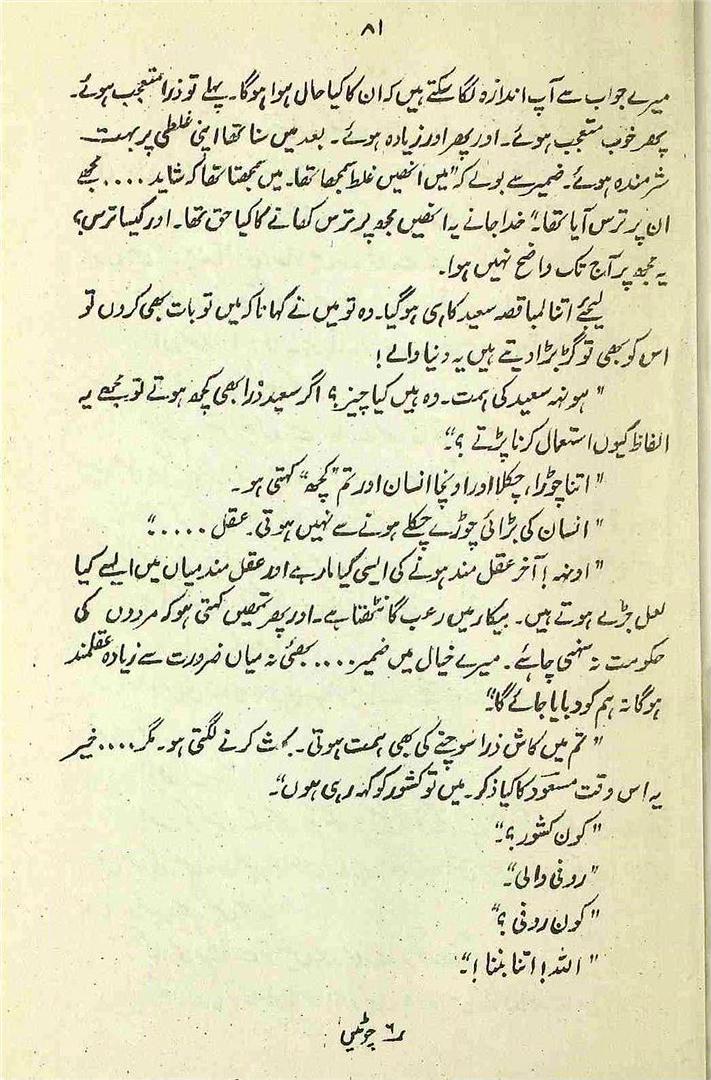 ۸۱
میرے جواب سے آپ اندازہ لگا سکتے ہیں کہ ان کا کیا حال ہوا ہوگا۔ پہلے تو ذرا متعجب ہوئے۔
پھر خوب متعجب ہوئے۔ اور پھر اور زیادہ ہوئے۔ بعد میں سنا تھا اپنی غلطی پر بہت
شرمندہ ہوئے۔ ضمیر سے بولے کہ "میں انھیں غلط سمجھا تھا۔ میں سمجھتا تھا کہ شاید .... مجھے
ان پر ترس آیا تھا۔" خدا جانے یہ انھیں مجھ پر ترس کھانے کا کیا حق تھا۔ اور کیسا ترس؟
یہ مجھ پر آج تک واضح نہیں ہوا۔
لیجئے اتنا لمبا قصہ سعید کا ہی ہو گیا۔ وہ تو میں نے کہا نا کہ میں تو بات بھی کروں تو
اس کو بھی تو گڑبڑا دیتے ہیں یہ دنیا والے!
"ہونہہ سعید کی ہمت۔ وہ ہیں کیا چیز؟ اگر سعید ذرا بھی کچھ ہوتے تو مجھے یہ
الفاظ کیوں استعمال کرنا پڑتے؟"
"اتنا چوڑا، چکلا اور اونچا انسان اور تم "کچھ" کہتی ہو۔
"انسان کی بڑائی چوڑے چکلے ہونے سے نہیں ہوتی۔ عقل ....."
"اونہہ! آخر عقل مند ہونے کی ایسی کیا مار ہے اور عقل مند میاں میں ایسے کیا
لعل جڑے ہوتے ہیں۔ بیکار میں رعب گانٹھتا ہے۔ اور پھر تمھیں کہتی ہو کہ مردوں کی
حکومت نہ سہنی چاہئے۔ میرے خیال میں ضمیر .... بھئی نہ میاں ضرورت سے زیادہ عقلمند
ہوگا نہ ہم کو دبایا جائے گا"
"تم میں کاش ذرا سوچنے کی بھی ہمت ہوتی۔ بحث کرنے لگتی ہو۔ مگر .... خیر
یہ اس وقت مسعود کا کیا ذکر۔ میں تو کشور کو کہہ رہی ہوں"۔
"کون کشور؟"
"روفی والی"۔
"کون روفی؟"
"اللہ! اتنا بننا!"۔
۶ چوٹیں